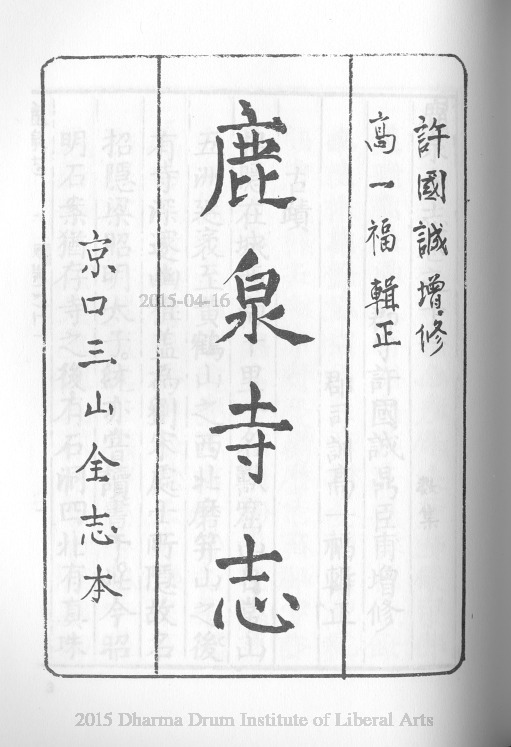 許國誠增修
高一福輯正
鹿泉寺志
京口三山全志本
2015-04-16
2015 Dharma Drum Institute of Liberal Arts